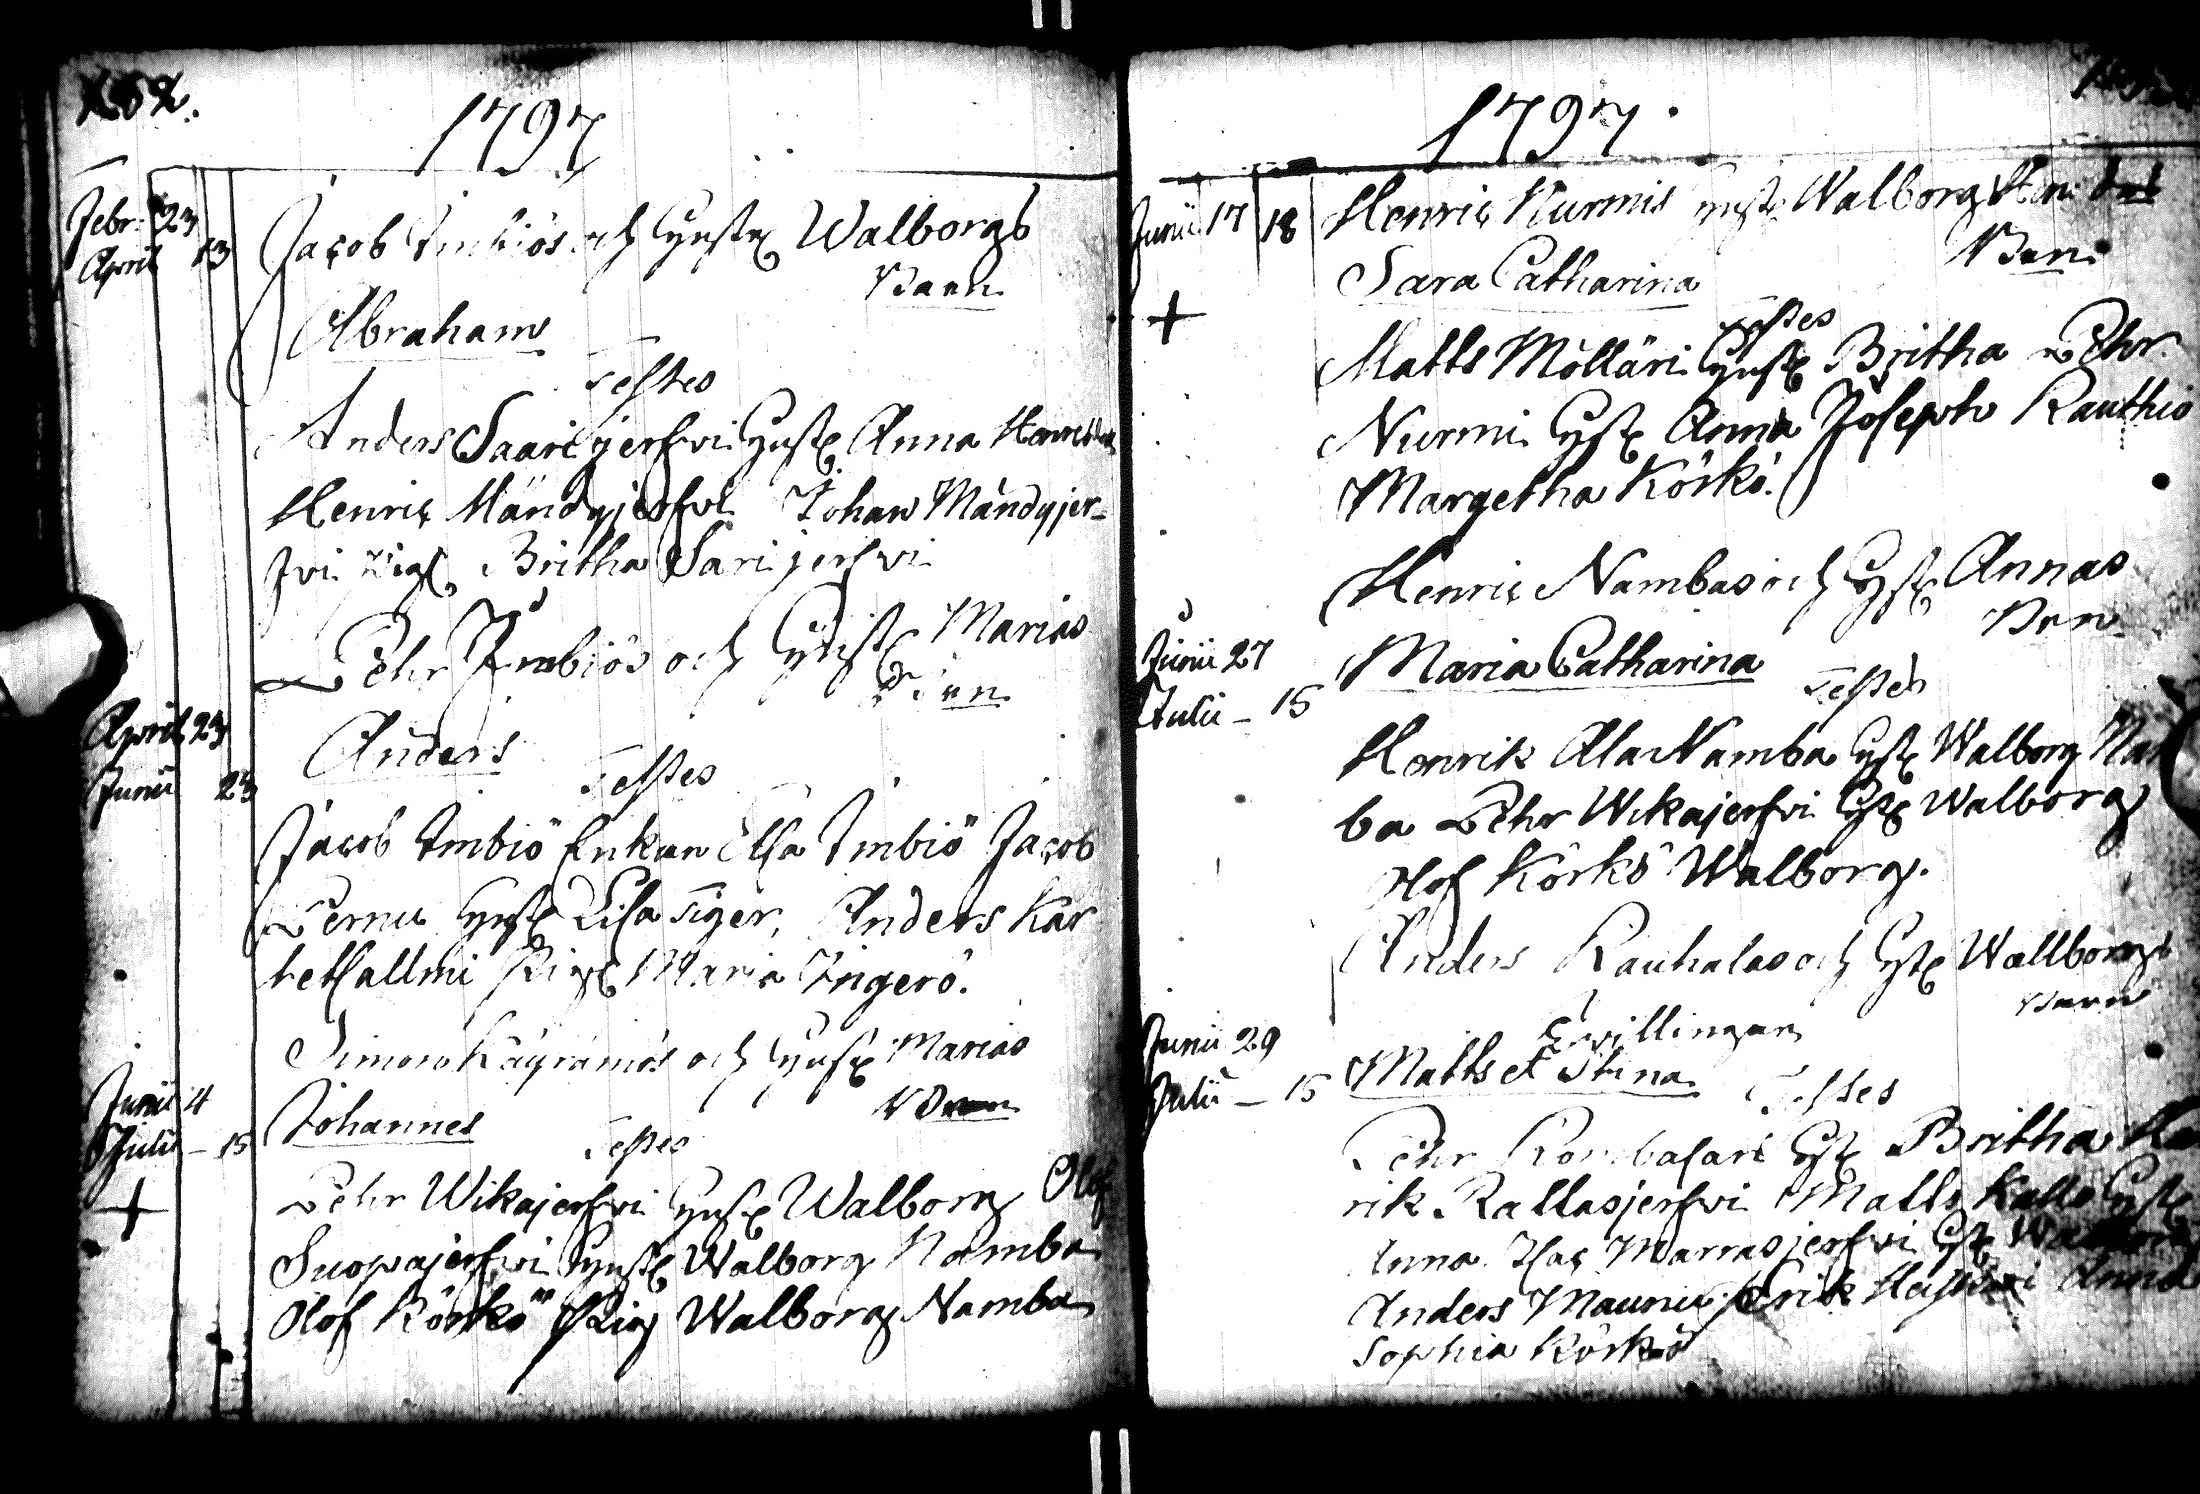 1797
Febr: 23
April 13
Jacob Imbiös och Hustr Walborgs
Barn
Abraham
Testes
Anders Saarijerfwi Hustr Anna
Henric Mändyjerfwi Johan Mändyjer-
fwi Pig Britha Sarijerfwi
Pehr Imbiös och Hustr Marias
Barn
April 23
Anders
Testes
Junii 23
Jacob Imbiö Enkan Elsa Imbiö Jacob
Pernu Hustr Lisa Tiger, Anders Kar
hetsallmi Pig Maria Ingerö.
Simon Käyrämös och Hustr Marias
Barn
Junii 4
Johannes
Julii - 15
Testes
Pehr Wikajerfwi Hustr Walborg Olof
Suopajerfwi Hustr Walborg Namba
Olof Körkö Pig Walborg Namba
1797.
Junii 17 18
Henric Nurmis Hustr Walborg
Barn
Sara Catharina
Testes
Matts Mölläri Hustr Britha Pehr
Nurmi Hustr Anna Joseph Rauthio
Margetha Körkö.
Henric Nambas och Hustr Annas
Barn
Junii 27
Maria Catharina
Julii - 15
Testes
Henrik Ala Namba Hustr Walborg Nam
ba Pehr Wikajerfwi Hustr Walborg
Olof Körkö Walborg.
Anders Rauhalas och Hustr Wallborgs
Barn
Tvillingar
Junii 29
Matts et Stina
Julii - 15
Testes
Pehr Hustr Britha Hen
rik Rattasjerfwi Matts Kalla Hustr
Anna Isac Marrasjerfwi Hustr
Anders Maunu Erik Anna
Sophia Körkö